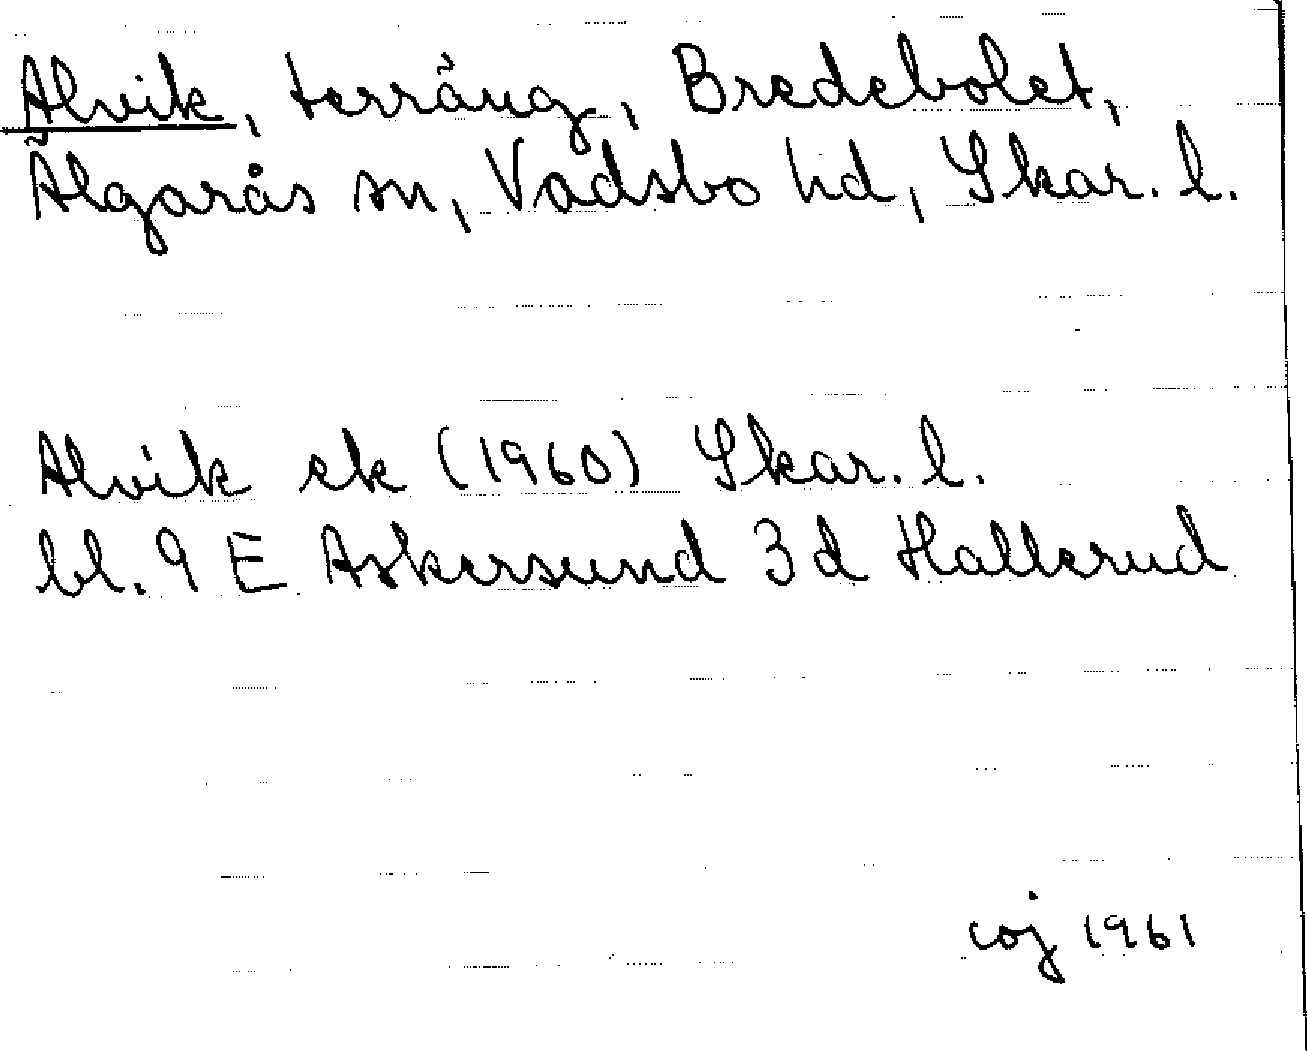 Alvik, terräng, Bredebolet,
Älgarås sn, Vadsbo hd, Skar. l.
Alvik ek (1960) Skar. l.
bl. 9 E Askersund 3d Hallerud
coj 1961